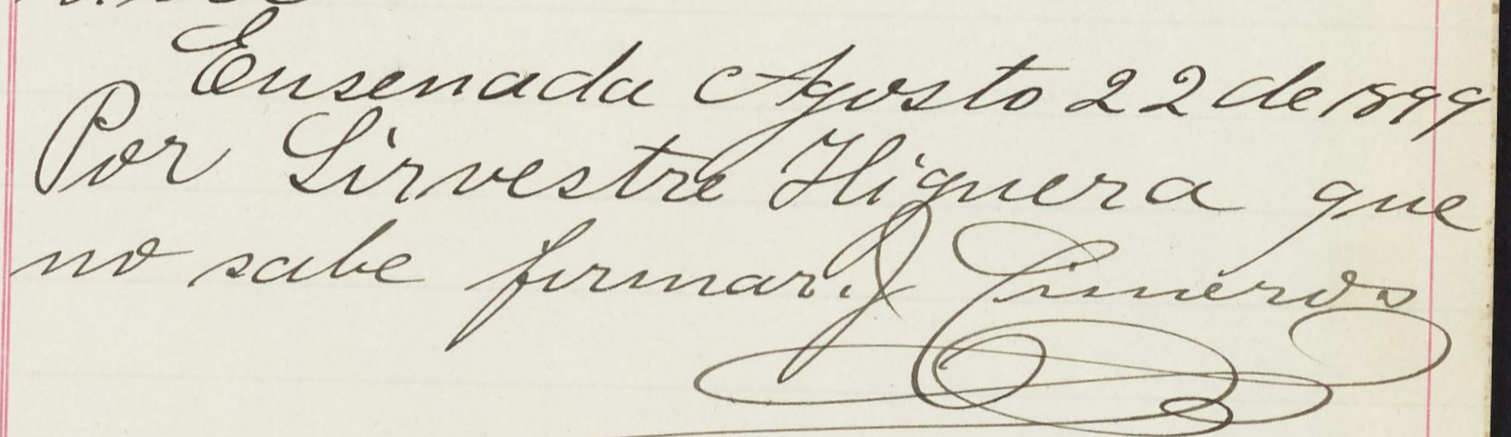 Ensenada Agosto 22 de 1899
Por Sirvestre Higuera que
no sabe firmar. J Cisneros